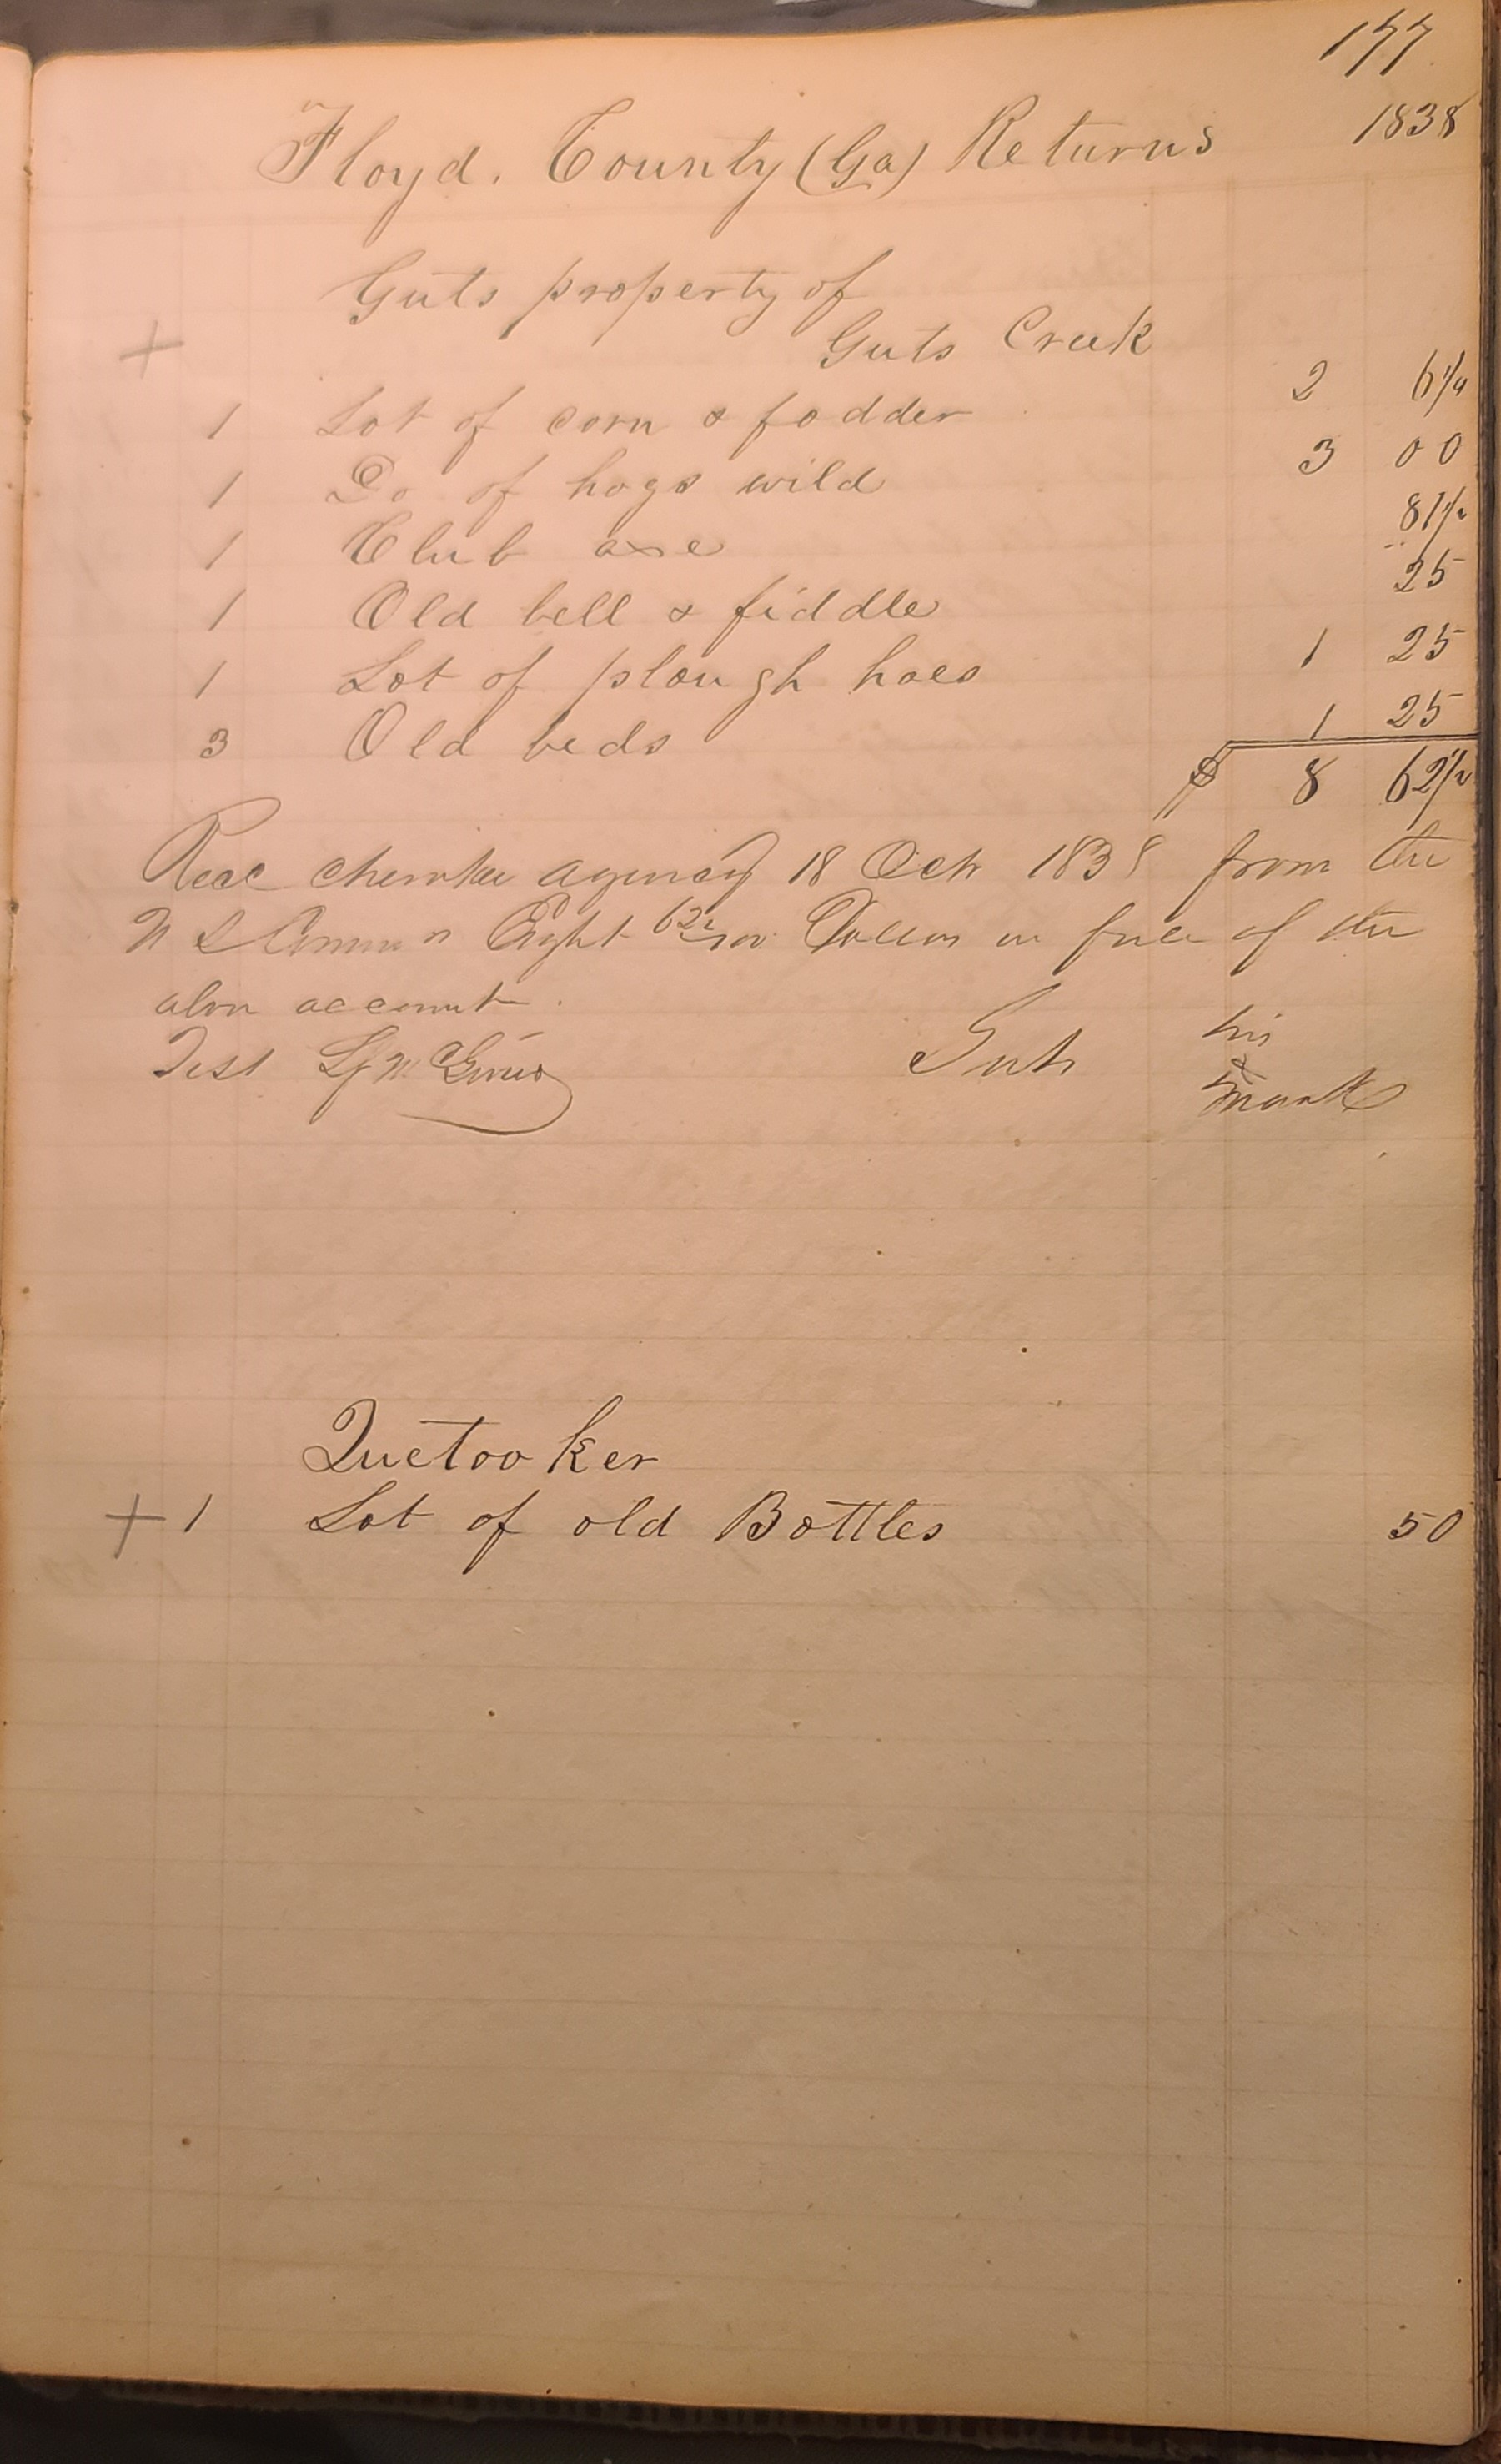 177
Floyd. County (Ga) Returns 1838
Guts property of
+ Guts Creek
1 Lot of corn & fodder 2 6 1/4
1 Do of hogs wild 3 00
1 Club axe 81 1/2
1 Old bell & fiddle 25
1 Lot of plough hoes 1 25
3 Old beds 1 25
$ 8 62 1/2
Recd Cherokee agency 18 Octr 1838 from the
U S Commrs Eight 62 1/2/100 Dollars in full of the
above account.
Test his
Guts x
mark
Quetooker
+ 1 Lot of old Bottles 50